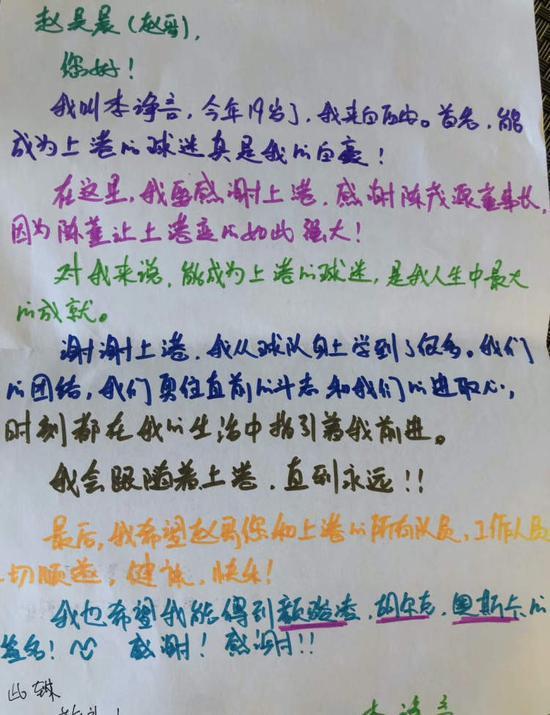 赵昊晨（赵哥），
您好！
我叫李诤言，今年19岁了，我来自西安。首先，能
成为上港的球迷真是我的自豪！
在这里，我要感谢上港，感谢陈戌源董事长，
因为陈董让上港变的如此强大！
对我来说，能成为上港的球迷，是我人生中最大
的成就。
谢谢上港，我从球队身上学到了很多。我们
的团结，我们勇往直前的斗志和我们的进取心，
时刻都在我的生活中指引着我前进。
我会跟随着上港，直到永远！！
最后，我希望赵哥您和上港的所有队员，工作人员
一切顺遂，健康，快乐！
我也希望我能得到颜骏凌，胡尔克，奥斯卡的
签名！感谢！感谢！！
此致
李诤言